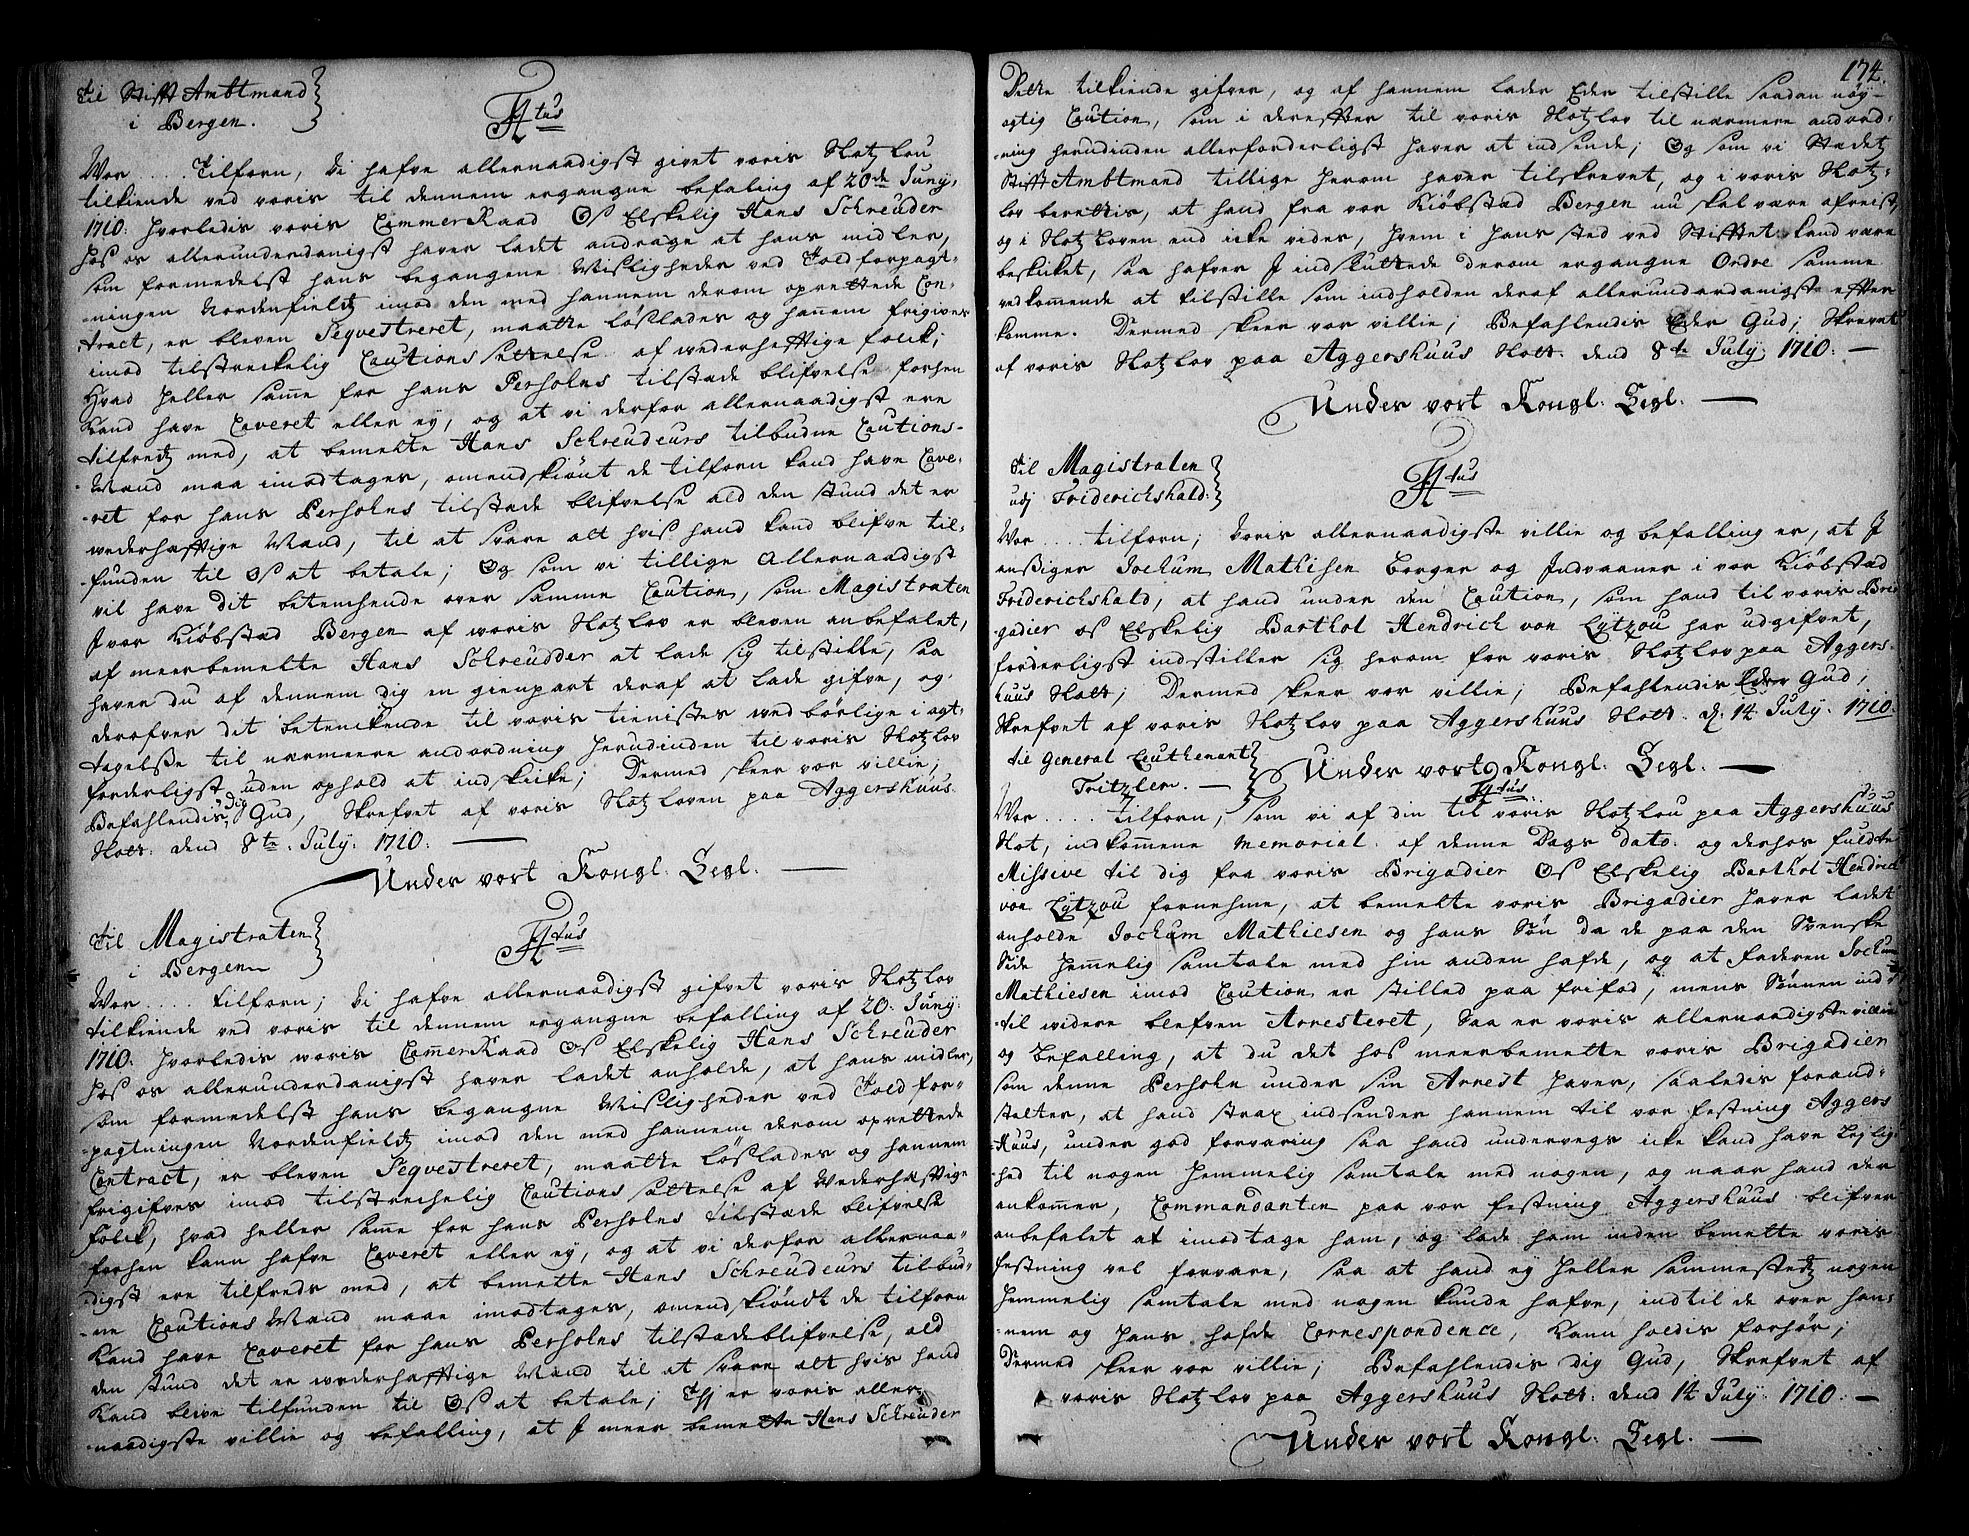 Til Stifft Ambtmand
i Bergen.
F4tus
Wor .... Tilforn, Vi hafve allernaadigst givet voris Slotz lou
tilkiende ved voris til dennem ergangne befaling af 20de Juny.
1710: hvorledis voris CammerRaad OS Elskelig Hans Schreuder
hos os allerunderdanigst haver ladet andrage at hans midler,
som formedelst hans begangene Wisligheder ved Toldforpagt-
-ningen Nordenfieldtz imod den med hannem derom oprettede Con-
tract, er bleven Seqvestreret, maatte løslades og hannem frigives
imod tilstreckelig Cautions settelse af wederhefftige folck;
Hvad heller samme for hans Persohns tilstade blifvelse forhen
Kand have Caveret eller ey, og at vi derfor allernaadigst ere
tilfredtz med, at bemelte Hans Schreudeurs tilbudne Cautions-
-Mand maa imodtages, omendskiønt de tilforn kand have Cave-
-ret for hans Persohns tilstade blifvelse ald den stund det er
wederhafftige Mænd, til at svare alt hvis hand kand blifve til-
-funden til OS at betale; Og som vi tillige Allernaadigst
vil have dit betenchende over samme Caution, som Magistraten
J vor Kiøbstad Bergen af woris Slotzlov er bleven anbefalet,
af meerbemelte Hans Schreudder at lade sig tilstille, saa
haver du af dennem dig en gienpart deraf at lade gifve, og
derofver dit betenckende til voris tienistes wed børlige i agt-
tagelse til nærmeere andordning herudinden til voris Slotzlov
forderligst uden ophold at indskicke; Dermed skeer vor villie;
Befahlendis dig Gud, Skrefvet af voris Slotz loven paa Aggershuus
Slott. dend 8te. July. 1710.
Under vort Kongl. Segl.
Til Magistraten
i Bergen
F4tus
Wor .... tilforn; Vi hafve allernaadigst gifvet voris Slotzlov
tilkiende ved voris til dennem ergangne befalling af 20. Juny:
1710: hvorledis woris CammerRaad OS Elskelig Hans Schreuder
hos os allerunderdanigst haver ladet anholde, at hans midler,
som formedelst hans begangne Wisligheder ved Told for-
-pagtningen Nordenfieldtz imod den med hannem derom oprettede
Contract, er bleven Seqvestreret, maatte løslades og hannem
frigifves imod tilstrechelig Cautions settelse af Wederhafftige
Folck, hvad heller samme for hans Persohns tilstæde blifvelse
forhen kann hafve Caveret eller ey, og at vi derfor allernaa-
-digst ere tilfreds med, at bemelte Hans Schreudeurs tilbud-
-ne Cautions Mænd maae imodtages, omendskiøndt de tilforn
Kand have Caveret for hans Persohns tilstadeblifvelse, ald
den stund det er wederhafftige Mænd til at svare alt hvis hand
Kand blive tilfunden til OS at betale; Thj er voris aller-
-naadigste villie og befalling, at J meer bemelte Hans Schreuder
174.
Dette tilkiende gifver, og af hannem lader Eder tilstille saadan nøy-
agtig Caution, som i derefter til voris Slotzlov til nærmere andord-
-ning herudinden allerforderligst haver at indsende; Og som vi Stedetz
Stifft Ambtmand tillige herom haver tilskrevet, og i voris Slotz-
lov berettis, at hand fra vor Kiøbstad Bergen nu skal være afreist,
og i Slotz loven end icke vides, hvem i hans sted ved Stifftet kand være
beskicket, saa hafver J indsluttede derom ergangne Ordre samme
vedkommende at tilstille som indholden deraf allerunderdanigst effter
komme. Dermed skeer vor villie; Befahlendis Eder Gud; Skrevet
af voris Slotzlov paa Aggershuus Slott. dend 8te July 1710.
Under vort Kongl. Segl.
Til Magistraten
udj Friderichshald.
F4tus
Wor .... tilforn; Voris allernaadigste villie og befalling er, at J
ansiger Jochum Mathisen borger og Indvaaner i vor Kiøbstad
Friderichshald, at hand under den Caution, som hand til voris Bri-
gadier OS Elskelig Barthol Hendrich von Lytzou har udgifvet,
forderligst indstiller sig herom for voris Slotzlov paa Aggers-
huus Slott; Dermed skeer vor villie; Befahlendis Eder Gud,
Skrefvet af voris Slotzlov paa Aggershuus Slott. d. 14 July. 1710.
Under vort Kongl. Segl.
til General Leuthenant
Tritzler.
F4tus.
Wor .... tilforn, som vi af din til voris Slotzlou paa Aggershuus
Slot, indkomne memorial af denne Dags dato og derhos fuldte
Missive til dig fra voris Brigadier OS Elskelig Barthol Hendrich
von Lytzou fornehme, at bemelte voris Brigadier haver ladet
anholde Jochum Mathiesen og hans Søn da de paa den Svenske
Side hemmelig samtale med hin anden hafde, og at Faderen Jochum
Mathiesen imod Caution er stilled paa frifod, mens Sønnen ind-
til widere blefven Arresteret, Saa er voris allernaadigste villie
og befalling, at du det hos meerbemelte voris Brigadier
som denne Persohn under sin Arrest haver, saaledis forand-
stalter, at hand strax indsender hannem til vor festning Aggers
Huus, under god forvaring saa hand undervegs icke kand have Lejlig-
-hed til nogen hemmelig samtale med nogen, og naar hand der
ankommer, Commandanten paa vor festning Aggershuus blifver
anbefalet at imodtage ham, og lade ham inden bemelte voris
festning vel forvare, saa at hand ey heller sammestedtz nogen
hemmelig samtale med nogen kunde hafve, indtil de over han-
-nem og hans hafde Correspondence, kann holdis forhør;
Dermed skeer vor villie; Befahlendis dig Gud, Skrefvet af
voris Slotzlov paa Aggershuus Slott: dend 14 July 1710.
Under vort Kongl. Segl.